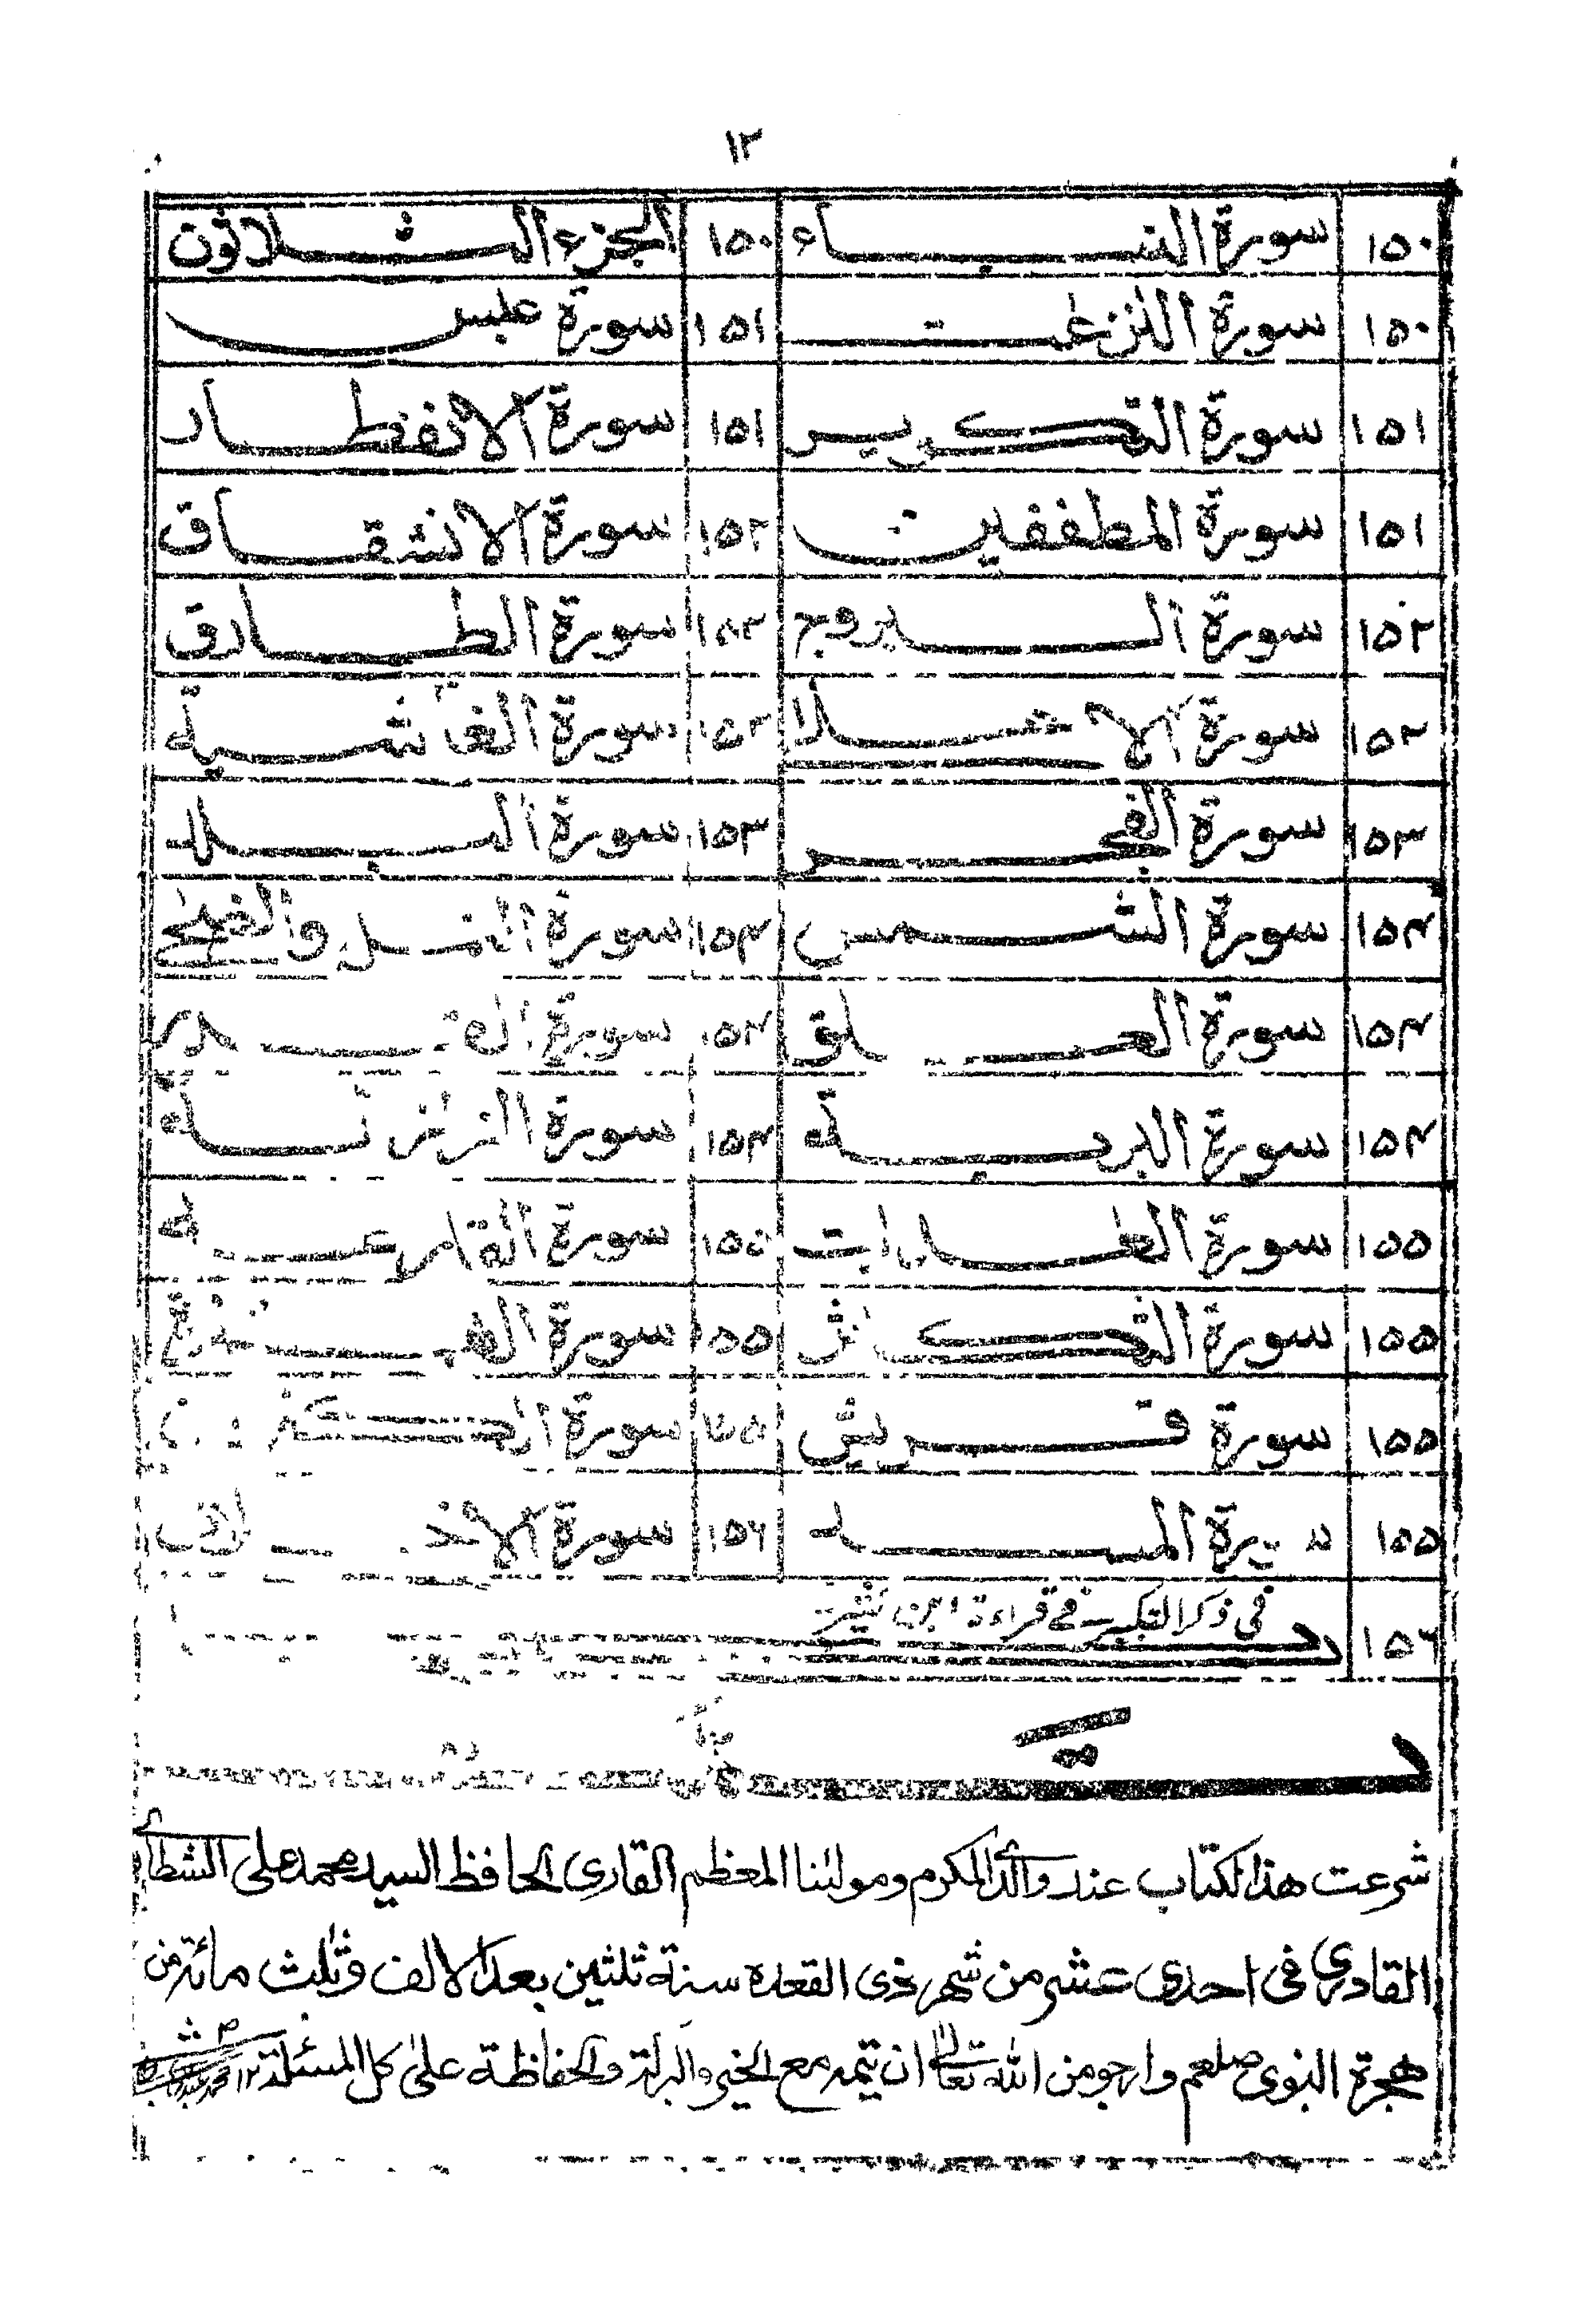 ١٢
١٥٠ سورة النبــاء ١٥٠ الجزء الثلاثون
١٥٠ سورة النٰزعٰت ١٥١ سورة عبس
١٥١ سورة التكوير ١٥١ سورة الانفطار
١٥١ سورة المطففين ١٥٢ سورة الانشقاق
١٥٢ سورة البروج ١٥٢ سورة الطارق
١٥٢ سورة الا ١٥٣ سورة الغاشية
١٥٣ سورة الفجر ١٥٣ سورة البلد
١٥٤ سورة الشمس ١٥٤ سورة اليل والضحٰى
١٥٤ سورة العلق ١٥٤ سورة القدر
١٥٤ سورة البرية ١٥٤ سورة الزلزلة
١٥٥ سورة العٰديات ١٥٥ سورة القارعة
١٥٥ سورة التكاثر ١٥٥ سورة الهمزة
١٥٥ سورة قريش سورة الكٰفرون
١٥٥ سورة المسد ١٥٦ سورة الاخلاص
١٥٦ فى ذكر التكبير فى قراءة ابن كثير
تمت
شرعت هذا الكتاب عند والد المكرم ومولٰنا المعظم القارى الحافظ السيد محمد على الشطارى
القادرى فى احدى عشر من شهر ذى القعده سنة ثلثين بعد الالف وثلٰث مائة من
هجرة النبوى صلعم وارجو من الله تعالٰى ان يتمه مع الخير والبركة والحفاظة علىٰ كل المسئلة ١٢